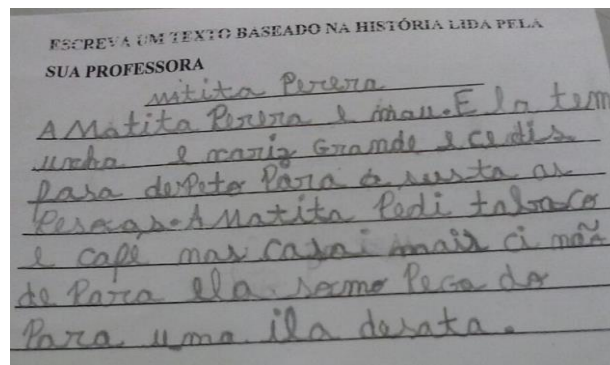 ESCREVA UM TEXTO BASEADO NA HISTÓRIA LIDA PELA
SUA PROFESSORA
mitita Perera
A Matita Perera e mau. E la tem
unha e nariz Grande e ce dis
fasa depeto Para a susta as
Pesoas. A Matita Pedi tabaco
e cafe mas casai mais ci não
de Para ela. somo Pecado
Para uma ila desata.